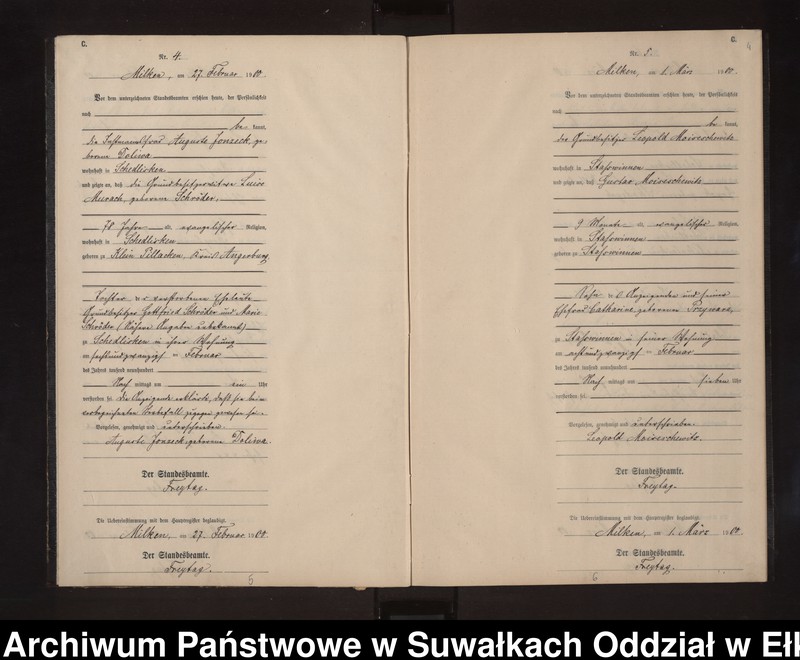 C.
Nr. 4.
Milken, am 27. Februar 1900.
Vor dem unterzeichneten Standesbeamten erschien heute, der Persönlichkeit
nach
be kannt,
die Instmannsfrau Auguste Jonzeck, ge-
borene Toliwa
wohnhaft in Schedlisken
und zeigte an, daß die Grundbesitzerwitwe Luise
Murach, geborene Schröder,
78 Jahre alt, evangelischer Religion,
wohnhaft in Schedlisken
geboren zu Klein Pillacken, Kreis Angerburg
Tochter der verstorbenen Eheleute
Grundbesitzer Gottfried Schröder und Marie
Schröder (Nähere Angaben unbekannt)
zu Schedlisken in ihrer Wohnung
am sechsundzwanzigsten Februar
des Jahres tausend neunhundert
Nach mittags um ein Uhr
verstorben sei. Die Anzeigende erklärte, daß sie beim
vorbezeichneten Sterbefall zugegen gewesen sei.
Vorgelesen, genehmigt und unterschrieben
Auguste Jonzeck geborene Toliwa.
Der Standesbeamte.
Freytag.
Die Uebereinstimmung mit dem Hauptregister beglaubigt.
Milken, am 27. Februar 1900.
Der Standesbeamte.
Freytag.
5
C.
4
Nr. 5.
Milken, am 1. März 1900.
Vor dem unterzeichneten Standesbeamten erschien heute, der Persönlichkeit
nach
be kannt,
der Grundbesitzer Leopold Moiserchewitz
wohnhaft in Staßwinnen
und zeigte an, daß Gustav Moiserchewitz
9 Monate alt, evangelischer Religion,
wohnhaft in Staßwinnen
geboren zu Staßwinnen
Sohn des Anzeigenden und seiner
Ehefrau Catharine geborenen
zu Staßwinnen in seiner Wohnung
am achtundzwanzigsten Februar
des Jahres tausend neunhundert
Nach mittags um sieben Uhr
verstorben sei.
Vorgelesen, genehmigt und unterschrieben.
Leopold Moiserchewitz.
Der Standesbeamte.
Freytag.
Die Uebereinstimmung mit dem Hauptregister beglaubigt.
Milken, am 1. März 1900.
Der Standesbeamte.
Freytag.
6
Archiwum Państwowe w Suwałkach Oddział w Ełk